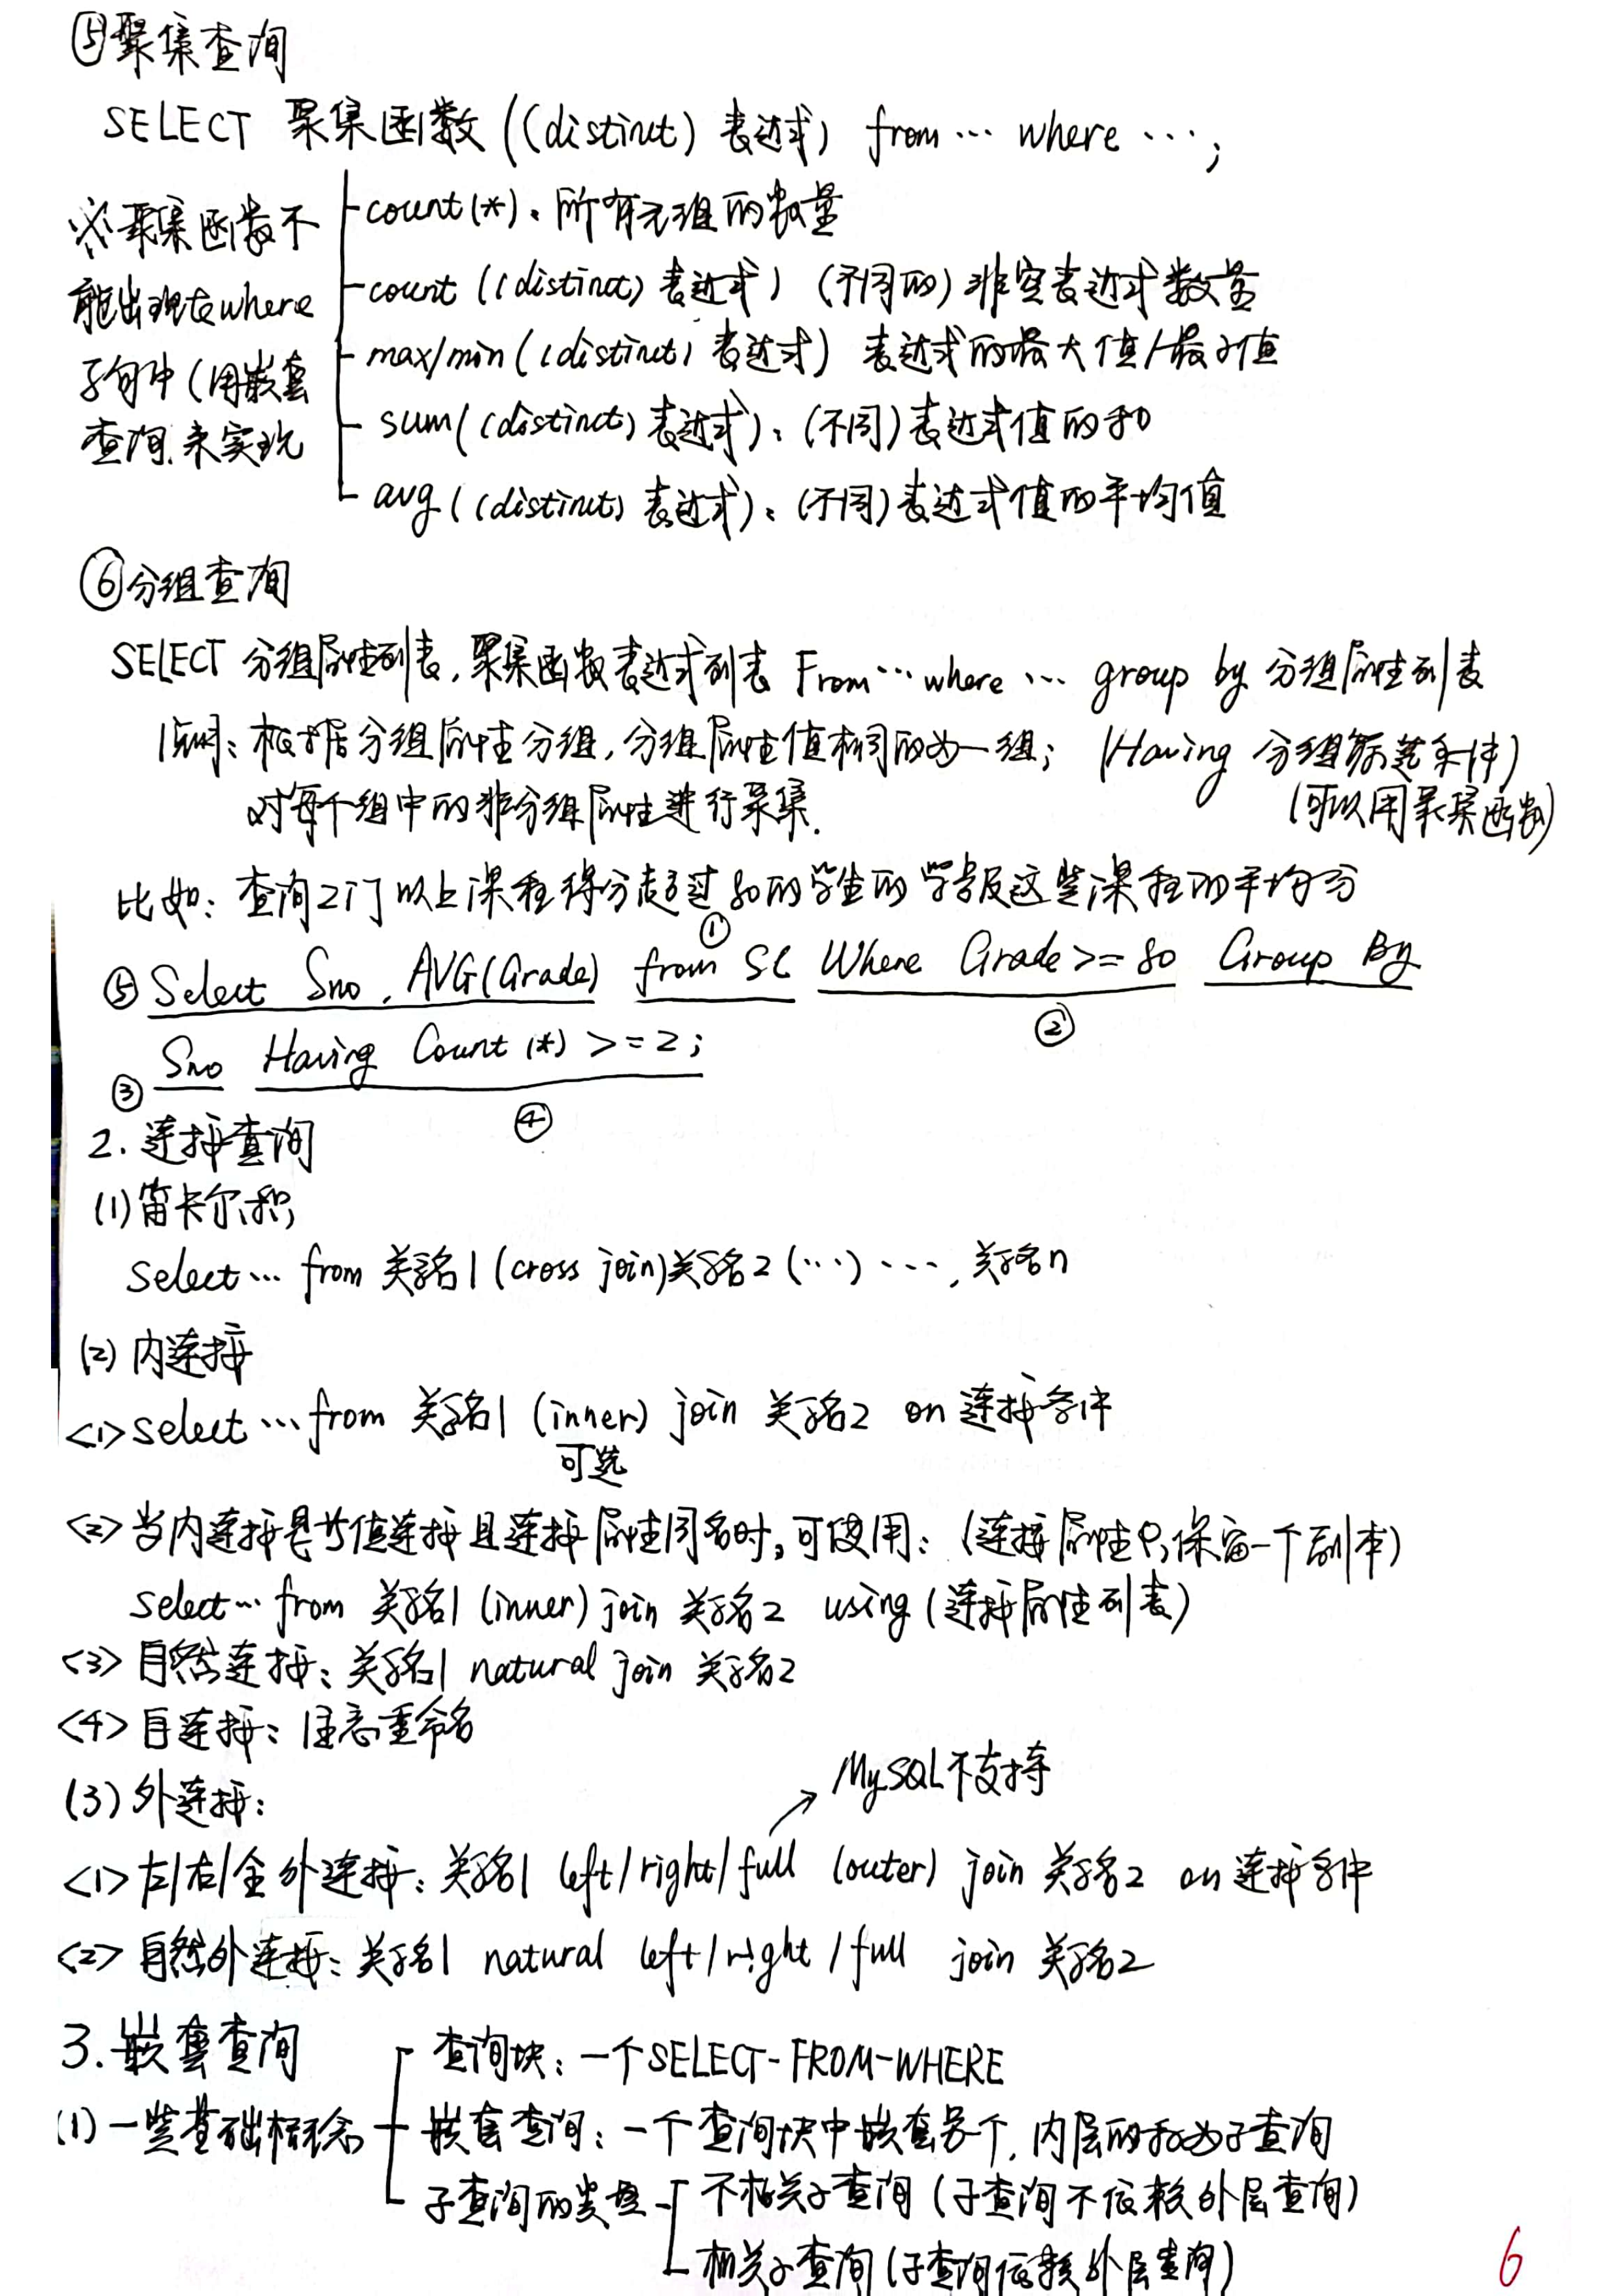 ⑤聚集查询
SELECT 聚集函数((distinct) 表达式) from … where …;
※聚集函数不能出现在where子句中(用嵌套查询来实现
count(*):所有元组的数量
count((distinct)表达式) (不同的)非空表达式数量
max/min((distinct)表达式) 表达式的最大值/最小值
sum((distinct)表达式):(不同)表达式值的和
avg((distinct)表达式):(不同)表达式值的平均值
⑥分组查询
SELECT 分组属性列表,聚集函数表达式列表 From … where … group by 分组属性列表
(Having 分组筛选条件)
(可以用聚集函数)
原则:根据分组属性分组,分组属性值相同的为一组;
对每个组中的非分组属性进行聚集.
比如:查询2门以上课程得分超过80的学生的学号及这些课程的平均分
①
⑤ Select Sno, AVG(Grade) from SC Where Grade>=80 Group By
②
③ Sno Having Count(*) >=2;
④
2. 连接查询
(1)笛卡尔积
select… from 关系名1 (cross join)关系名2 (…) …,关系名n
(2) 内连接
<1> select …from 关系名1 (inner) join 关系名2 on 连接条件
可选
<2> 当内连接是等值连接且连接属性同名时,可使用:(连接属性只保留一个副本)
select… from 关系名1 (inner) join 关系名2 using (连接属性列表)
<3> 自然连接:关系名1 natural join 关系名2
<4> 自连接:注意重命名
(3) 外连接:
MySQL不支持
<1> 左/右/全外连接:关系名1 left/right/full (outer) join 关系名2 on 连接条件
<2> 自然外连接:关系名1 natural left/right/full join 关系名2
3. 嵌套查询
(1)一些基础概念
查询块:一个SELECT-FROM-WHERE
嵌套查询:一个查询块中嵌套另个,内层的称为子查询
子查询的类型
不相关子查询(子查询不依赖外层查询)
相关子查询(子查询依赖外层查询)
6